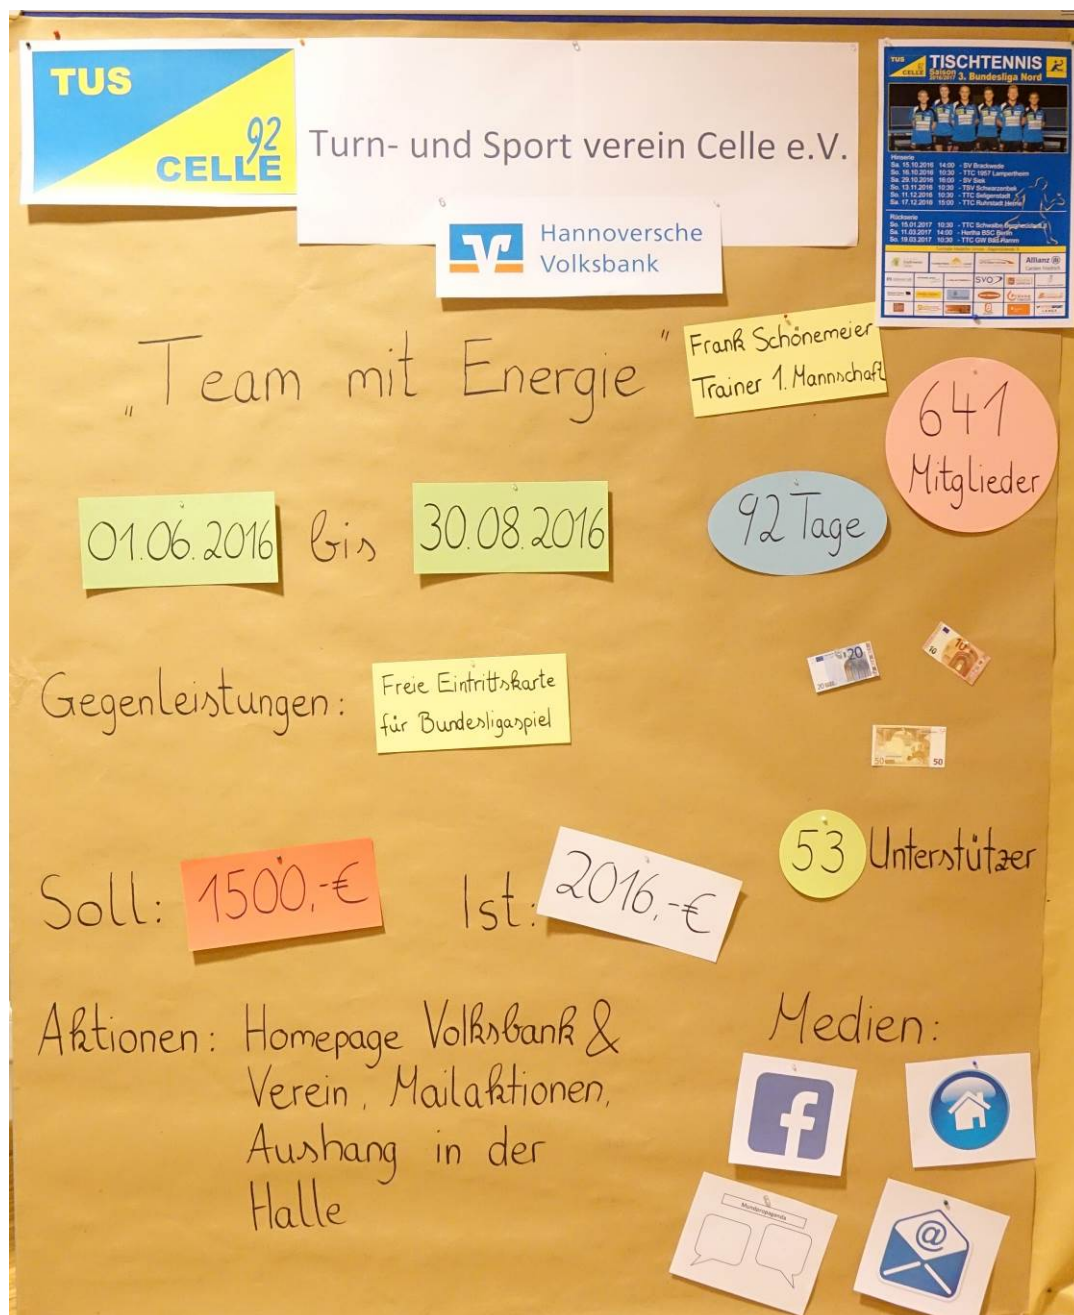 TUS
92
CELLE
Turn- und Sport verein Celle e.V.
Hannoversche
Volksbank
TUS
CELLE
TISCHTENNIS
Saison
2016/2017 3. Bundesliga Nord
Hinserie
Sa. 15.10.2016 14:00 - SV Brackwede
So. 16.10.2016 10:30 - TTC 1957 Lampertheim
Sa. 29.10.2016 16:00 - SV Siek
So. 13.11.2016 10:30 - TSV Schwarzenbek
So. 11.12.2016 10:30 - TTC Seligenstadt
Sa. 17.12.2016 15:00 - TTC Ruhrstadt Herne
Rückserie
So. 15.01.2017 10:30 - TTC Schwalbe Bergneustadt
Sa. 11.03.2017 14:00 - Hertha BSC Berlin
So. 19.03.2017 10:30 - TTC GW Bad Hamm
Allianz
SVO
„Team mit Energie"
Frank Schönemeier
Trainer 1. Mannschaft
641
Mitglieder
01.06.2016 bis 30.08.2016
92 Tage
Gegenleistungen:
Freie Eintrittskarte
für Bundesligaspiel
20
20 EURO
10
50
50
Soll: 1500,-€
Ist: 2016,-€
53 Unterstützer
Aktionen: Homepage Volksbank &
Verein, Mailaktionen,
Aushang in der
Halle
Medien:
f
Mundpropaganda
@